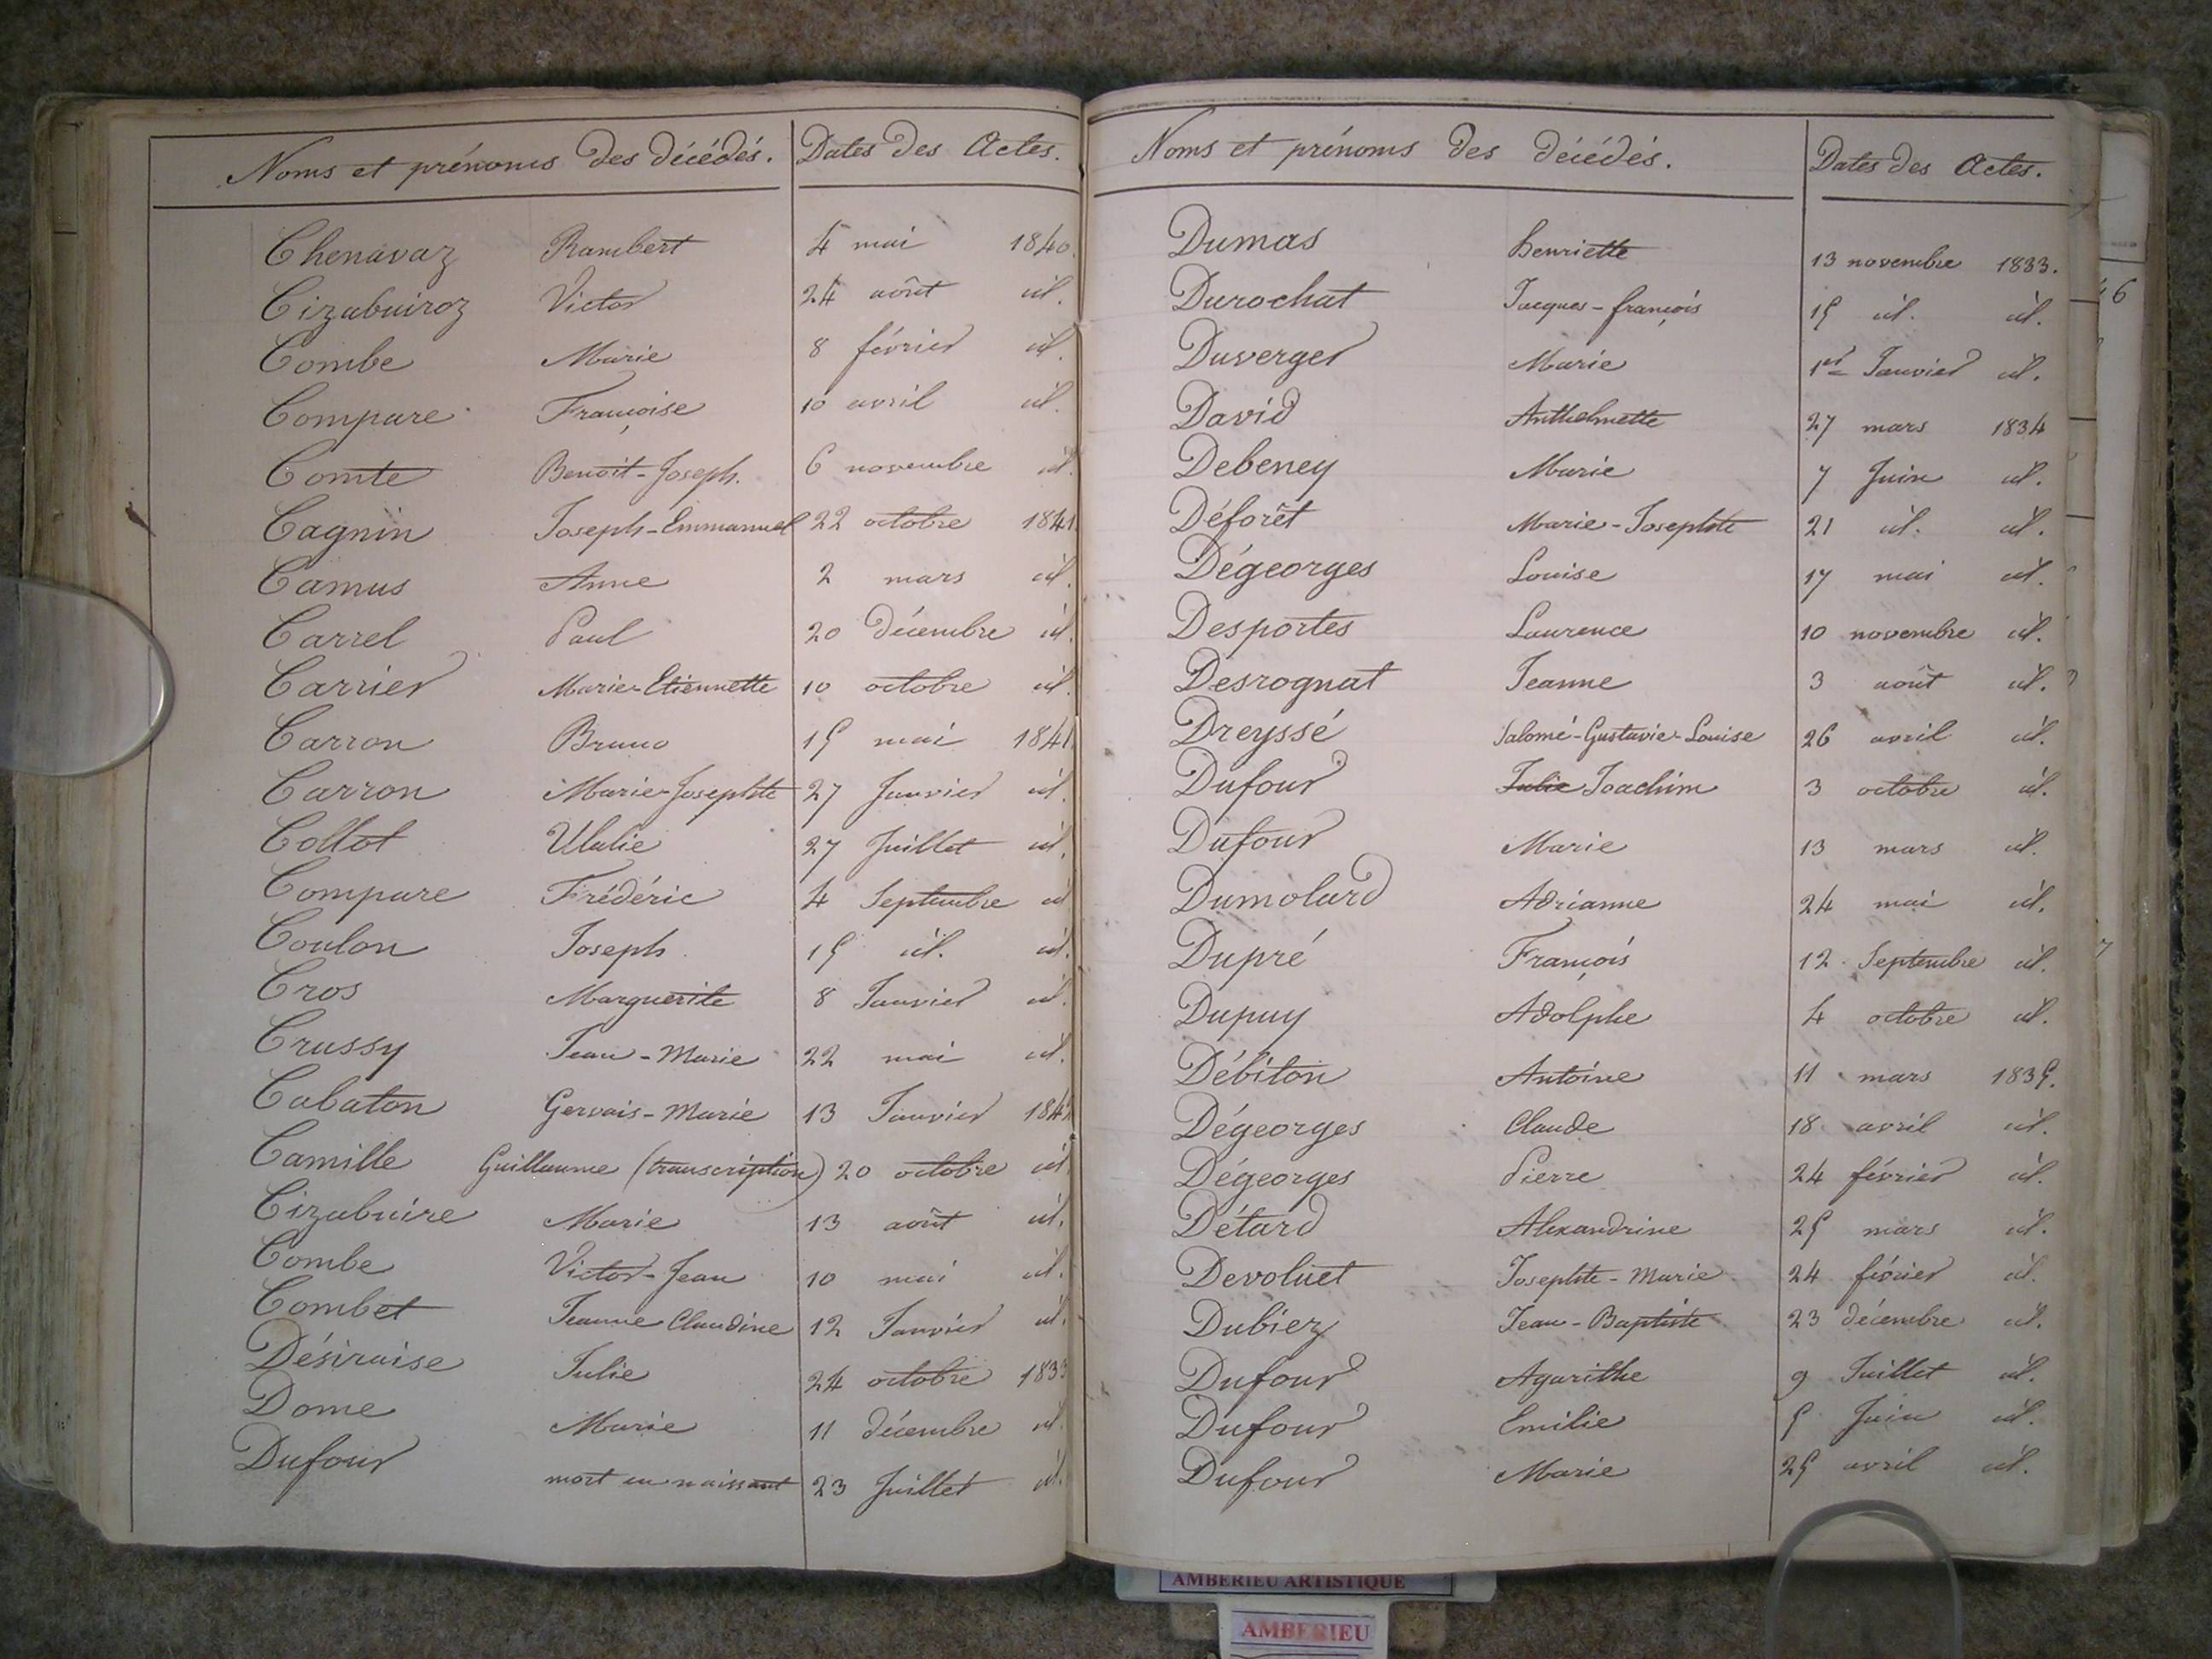 Noms et prénoms des décédés. Dates des Actes.
Chenavaz Rambert 4 mai 1840.
Cizabuiroz Victor 24 août id.
Combe Marie 8 février id.
Compare Françoise 10 avril id.
Comte Benoit-Joseph. 6 novembre id.
Cagnin Joseph-Emmanuel 22 octobre 1841
Camus Anne 2 mars id.
Carrel Paul 20 décembre id.
Carrier Marie-Etiennette 10 octobre id.
Carron Bruno 15 mai 1841.
Carron Marie-Josephte 27 Janvier id.
Collot Ulalie 27 Juillet id.
Compare Frédéric 4 Septembre id
Coulon Joseph 15 id. id.
Cros Marguerite 8 Janvier id.
Crussy Jean-Marie 22 mai id.
Cabaton Gervais-Marie 13 Janvier
Camille Guillaume (transcription) 20 octobre id.
Cizabuire Marie 13 août id.
Combe Victor-Jean 10 mai id.
Combet Jeanne Claudine 12 Janvier id.
Désiraise Julie 24 octobre 1833
Dome Marie 11 décembre id.
Dufour mort en naissant 23 Juillet id.
Noms et prénoms des décédés. Dates des Actes.
Dumas henriette 13 novembre 1833.
Durochat Jacques-françois 15 id. id.
Duverger Marie 1er Janvier id.
David Anthelmette 27 mars 1834
Debeney Marie 7 Juin id.
Déforêt Marie-Josephte 21 id. id.
Dégeorges Louise 17 mai id.
Desportes Laurence 10 novembre id.
Desrognat Jeanne 3 août id.
Dreyssé Salomé-Gustavie-Louise 26 avril id.
Dufour Julie Joachim 3 octobre id.
Dufour Marie 13 mars id.
Dumolard Adrianne 24 mai id.
Dupré François 12 Septembre id.
Dupuy Adolphe 4 octobre id.
Débiton Antoine 11 mars 1835.
Dégeorges Claude 18 avril id.
Dégeorges Pierre 24 février id.
Détard Alexandrine 25 mars id.
Devoluet Josephte-Marie 24 février id.
Dubiez Jean-Baptiste 23 décembre id.
Dufour Agarithe 9 Juillet id.
Dufour Emilie 5 Juin id.
Dufour Marie 25 avril id.
6
AMBERIEU ARTISTIQUE
AMBERIEU